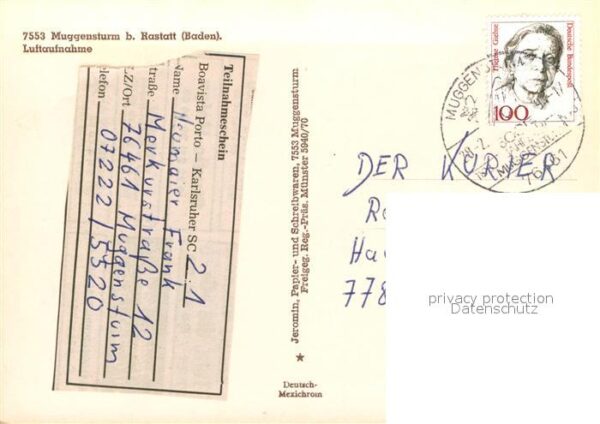 7553 Muggensturm b. Rastatt (Baden).
Luftaufnahme
Teilnahmeschein
Boavista Porto – Karlsruher SC 2.1
Name Neumaier Frank
Straße Merkurstraße 12
LZ/Ort 76461 Muggensturm
elefon 07222/5520
Jeromin, Papier- und Schreibwaren, 7553 Muggensturm
Freigeg. Reg.-Präs. Münster 5940/70
Deutsch-
Mexichrom
Deutsche Bundespost
100
MUGGENSTURM
76461
DER KURIER
Ra
Ha
778
privacy protection
Datenschutz